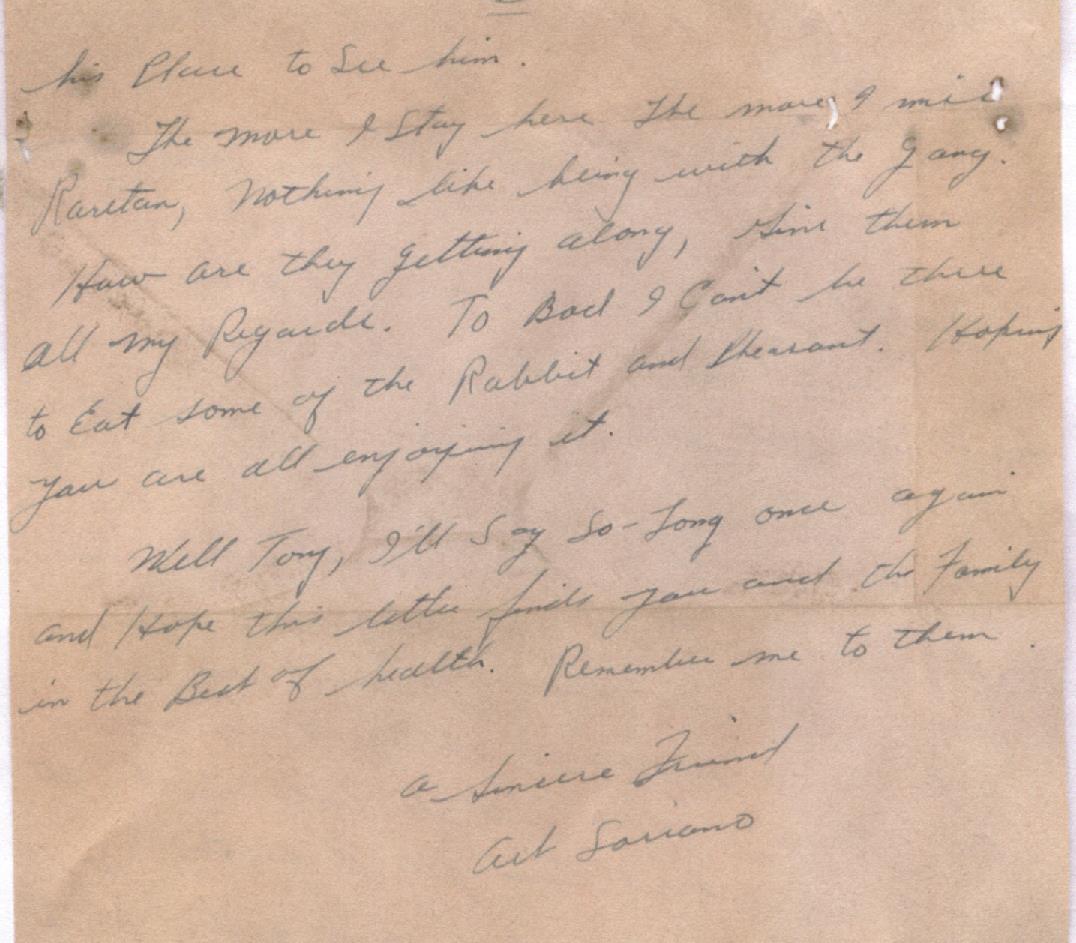 his Place to See him.
The more I Stay here The more I miss
Raritan, Nothing like being with the gang.
How are they getting along, Give them
all my Regards. To Bad I Can't be there
to Eat some of the Rabbit and Pheasant. Hoping
you are all enjoying it.
Well Tony, I'll Say So-Long once again
and Hope this letter finds you and the Family
in the Best of health. Remember me to them.
a Sincere Friend
Art Soriano